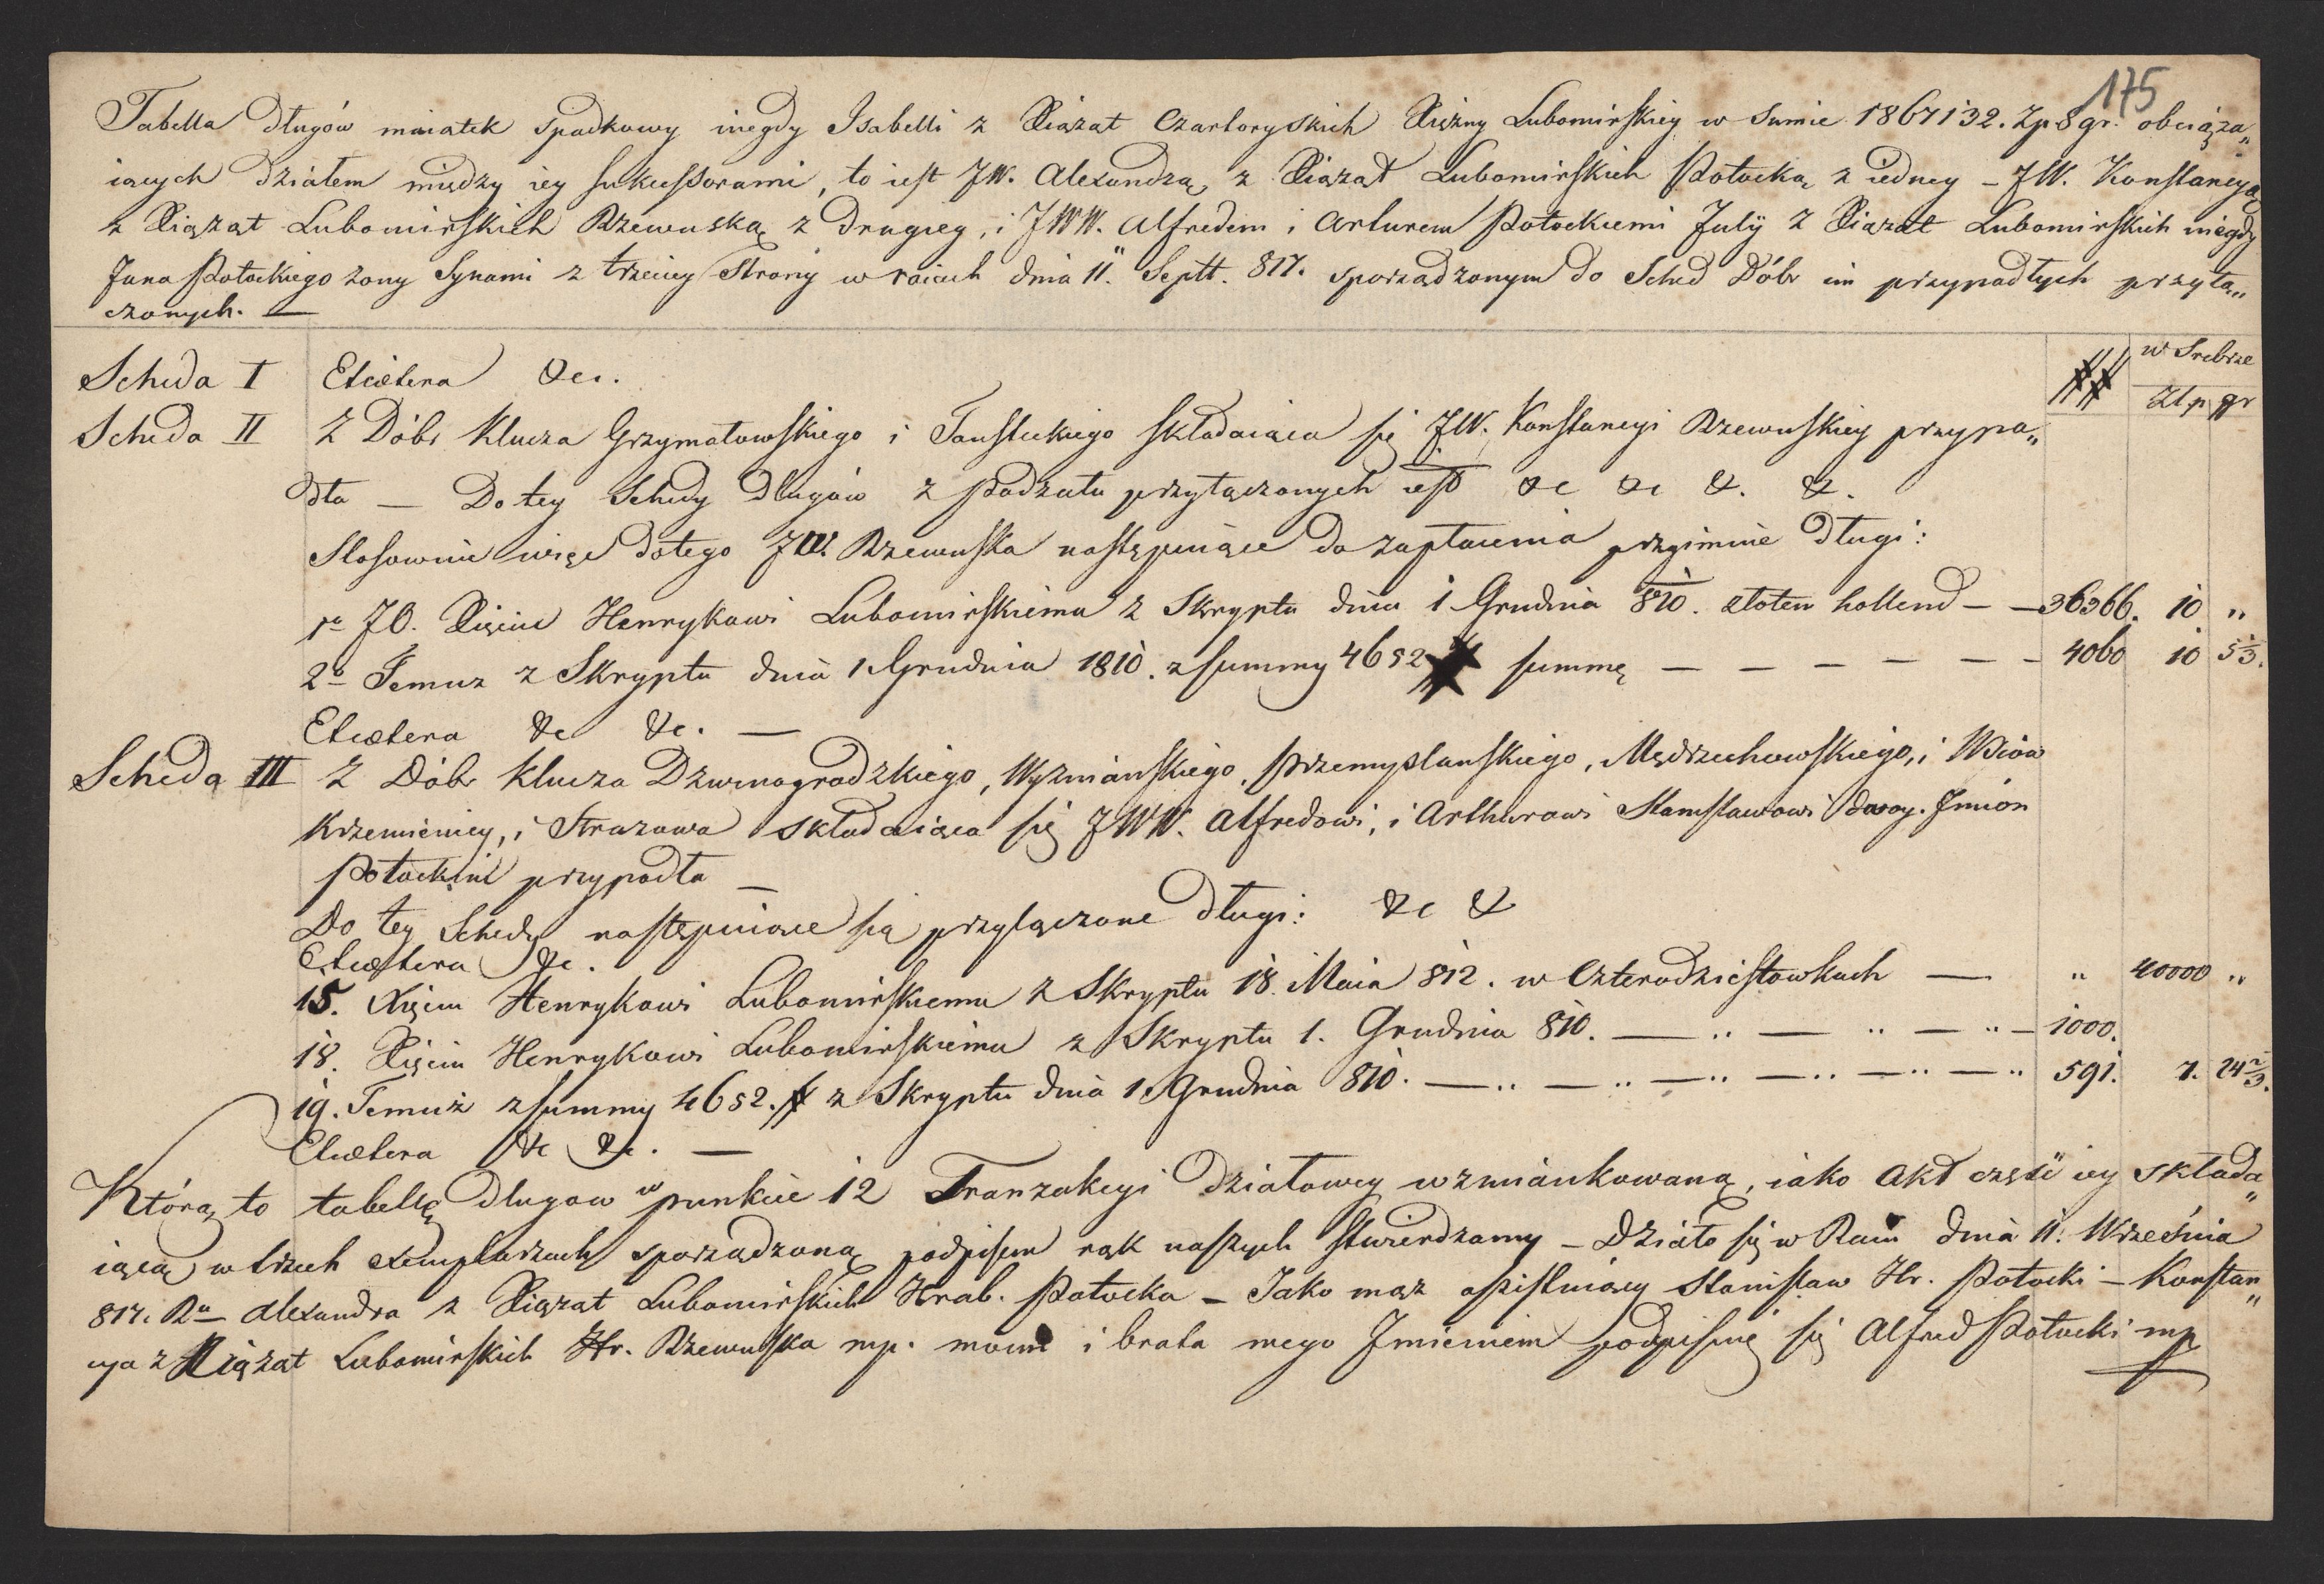 175
Tabella długów maiatek spadkowy niegdy Isabelli z Xiażat Czartoryskich Xiężny Lubomirskiey w Sumie 1867132. Zp 8 gr. obciąża„
iących działem między iey sukcessorami, to iest JW. Alexandrą z Xiążąt Lubomirskich Potocką z iedney – JW. Konstancyą
z Xiążąt Lubomirskich Rzewuską z drugiey, i JWW. Alfredem i Arturem Potockiemi Julÿ z Xiażąt Lubomirskich niegdy
Jana Potockiego żony Synami z trzeciey Strony w raiach dnia 11. Septt. 817. sporządzonym do Sched Dóbr im przypadłych przyłą„
czonych. —
## w Srebrze
Złp gr
Scheda I Etcætera &c.
Scheda II Z Dóbr Klucza Grzymałowskiego i Tausteckiego składaiąca się JW. Konstancyi Rzewuskiey przypa„
dła — Do tey Schedy długów z podziału przyłączonych iest &c &c &. &.
Stosownie więc dotego JW. Rzewuska następuiące do zapłacenia przyimuie długi:
1o JO. Xięciu Henrykowi Lubomirskiemu z Skryptu dnia 1 Grudnia 810. złoten hollend – – 36366. 10 „
2o Temuz z Skryptu dnia 1 Grudnia 1810. z summy 4652 # summę – – – – – – 4060 10 5⅓.
Etcætera &c &c. —
Scheda III Z Dóbr Klucza Dzwinogrodzkiego, Wyzniańskiego, Przemyslanskiego, Mędrzechowskiego, i Wsiów
Krzemienicy, i Strazowa składaiąca się JWW. Alfredowi, i Arthurowi Stanisławowi dwoy. Imion
Potockim przypadła —
Do tey Schedy następuiące są przyłączone długi: &c &
Etcætera &c.
15. Xięciu Henrykowi Lubomirskiemu z Skryptu 18. Maia 812. w Czterodziestowkach — „ 40000 „
18. Xięciu Henrykowi Lubomirskiemu z Skryptu 1. Grudnia 810. — „ — „ — „ – 1000.
19. Temuż z summy 4652. # z Skryptu dnia 1 Grudnia 810. — „ — „ — „ — „ — „ — „ 591. 7. 24⅔.
Etcætera &c &c. —
Którą to tabellę długow w punkcie 12 Tranzakcyi działowey wzmiankowaną, iako Akt część iey składa„
iącą w trzech exemplarzach sporządzoną podpisem rąk naszych stwierdzamy – Działo się w Raiu dnia 11. Września
817. Ru Alexandra z Xiążat Lubomirskich Hrab. Potocka – Jako mąż assistuiący Stanisław Hr. Potocki – Konstan„
cya z Xiążat Lubomirskich Hr. Rzewuska mp. moim i brata mego Imieniem podpisuię się Alfred Potocki mp